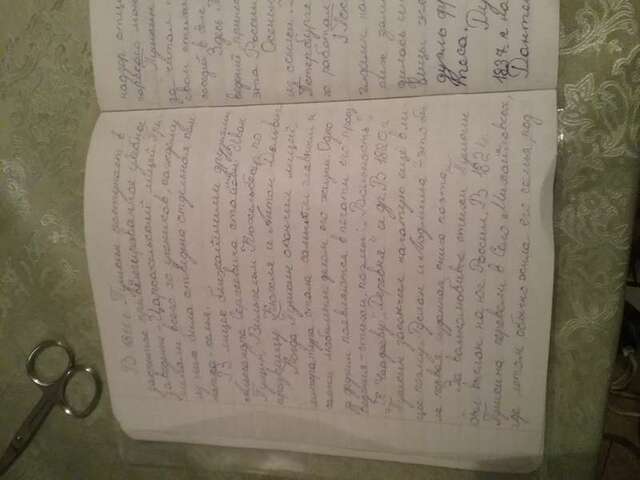 В 1811 г. Пушкин поступает в
закрытое привилегированное учебное
заведение - Царскосельский лицей. При
нимали всего 30 учеников, каждому
из них была отведена отдельная ком
ната - келья.
В лицее ближайшими друзьями
Александра Сергеевича стали Иван
Пущин, Вильгельм Кюхельбекер по
прозвищу Кюхля и Антон Дельвиг.
Когда Пушкин окончил лицей,
литература стала самым главным и
самым любимым делом его жизни. Одно
за другим появляются в печати его произ
ведения - стихи, поэмы: "Вольность",
"К Чаадаеву", "Деревня" и др. В 1820 г.
Пушкин закончил начатую ещё в ли
цее поэму "Руслан и Людмила" - это бы
ла первая изданная книга поэта.
За вольнолюбивые стихи Пушкин
был выслан на юг России. В 1824 г.
Пушкина перевели в Село Михайловское,
где летом обычно жила его семья, под
надзор
Пушкин
за читал
свои
Здесь
ведений
эта России
Осенью
из ссылки.
Петербурге
работал
дуэль
теса.
1837 г. на
Данте